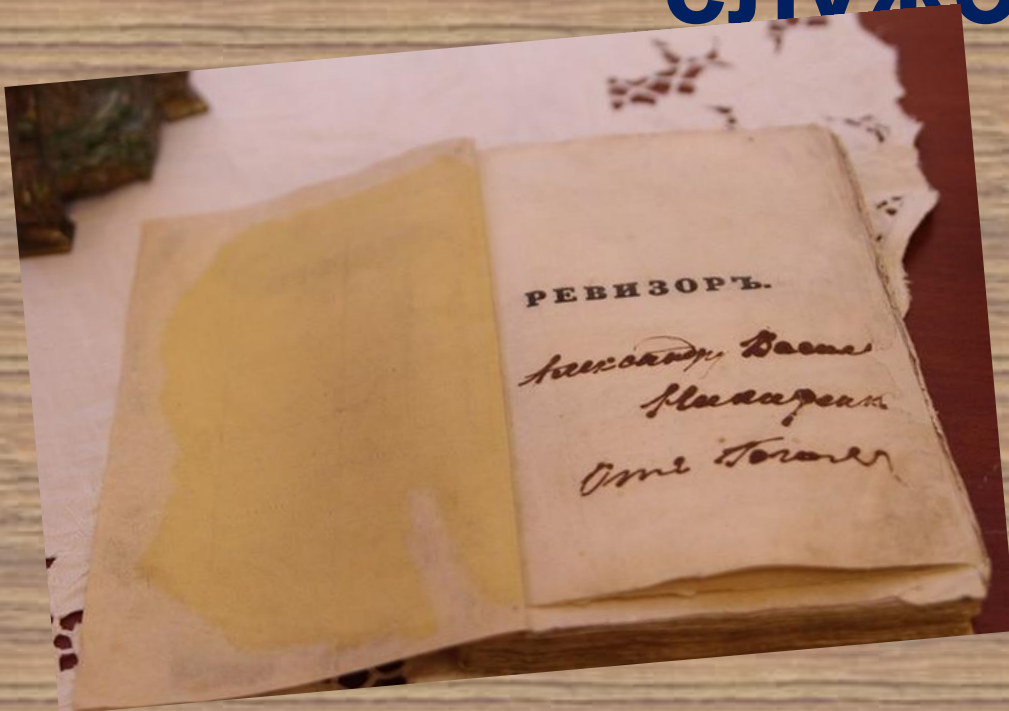 РЕВИЗОРЪ.
Александру Васил
Никитенк
Отъ Гоголя